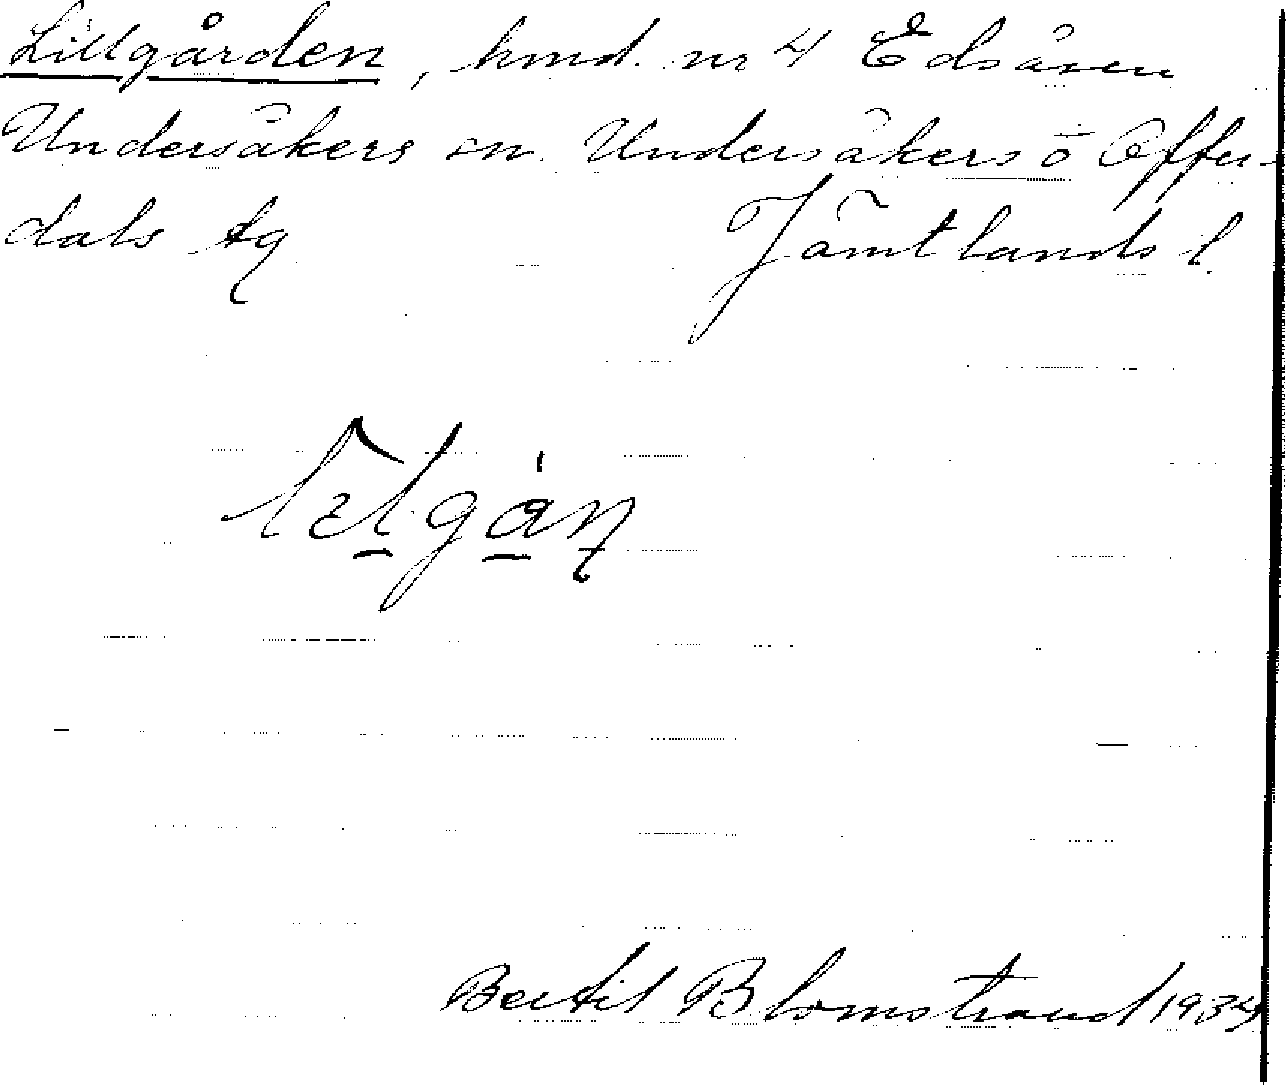 Lillgården, hmd. nr 4 Edsåsen
Undersåkers sn. Undersåkers o Offer-
dals tg Jämtlands l.
Bertil Blomstrand 1934